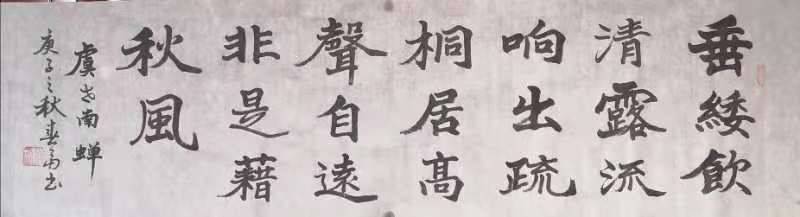 垂緌飲
清露流
响出疏
桐居高
聲自遠
非是藉
秋風
虞世南蝉
庚子之秋春高书